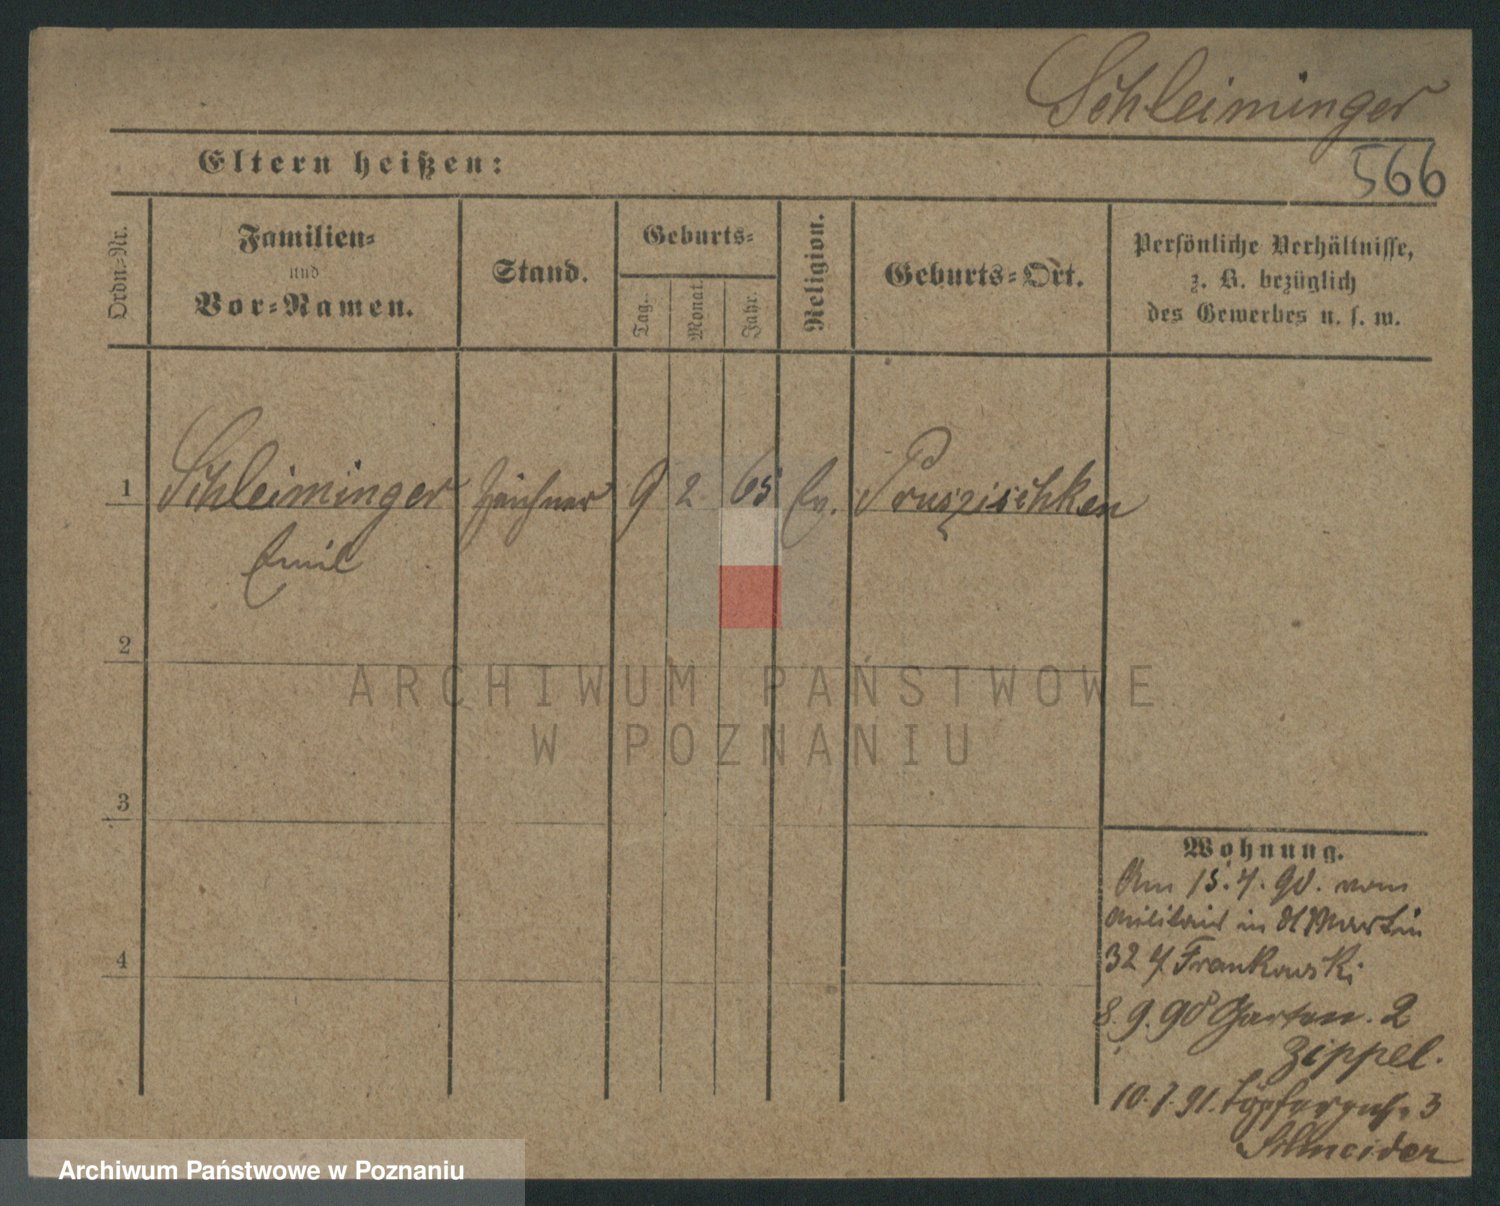 Schleiminger
Eltern heißen:
566
Ordn.-Nr.
Familien-
und
Vor-Namen.
Stand.
Geburts-
Tag.
Monat.
Jahr.
Religion.
Geburts-Ort.
Persönliche Verhältnisse,
z. B. bezüglich
des Gewerbes u. s. w.
1 Schleiminger Zeichner 9 2 65 Ev. Pruszischken
Emil
2
3
4
Wohnung.
Am 15.4.90. vom
Militair in St Martin
32 Frankowski
8.9.90 Garten. 2
Zippel.
10.7.91. Töpfergasse 3
Schneider
ARCHIWUM PAŃSTWOWE
W POZNANIU
Archiwum Państwowe w Poznaniu